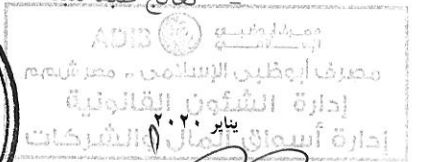 مصرف أبوظبي الإسلامي
ADIB
مصرف أبوظبي الإسلامي .. مصر ش.م.م
إدارة الشئون القانونية
يناير ٢٠٢٠
إدارة أسواق المال والشركات